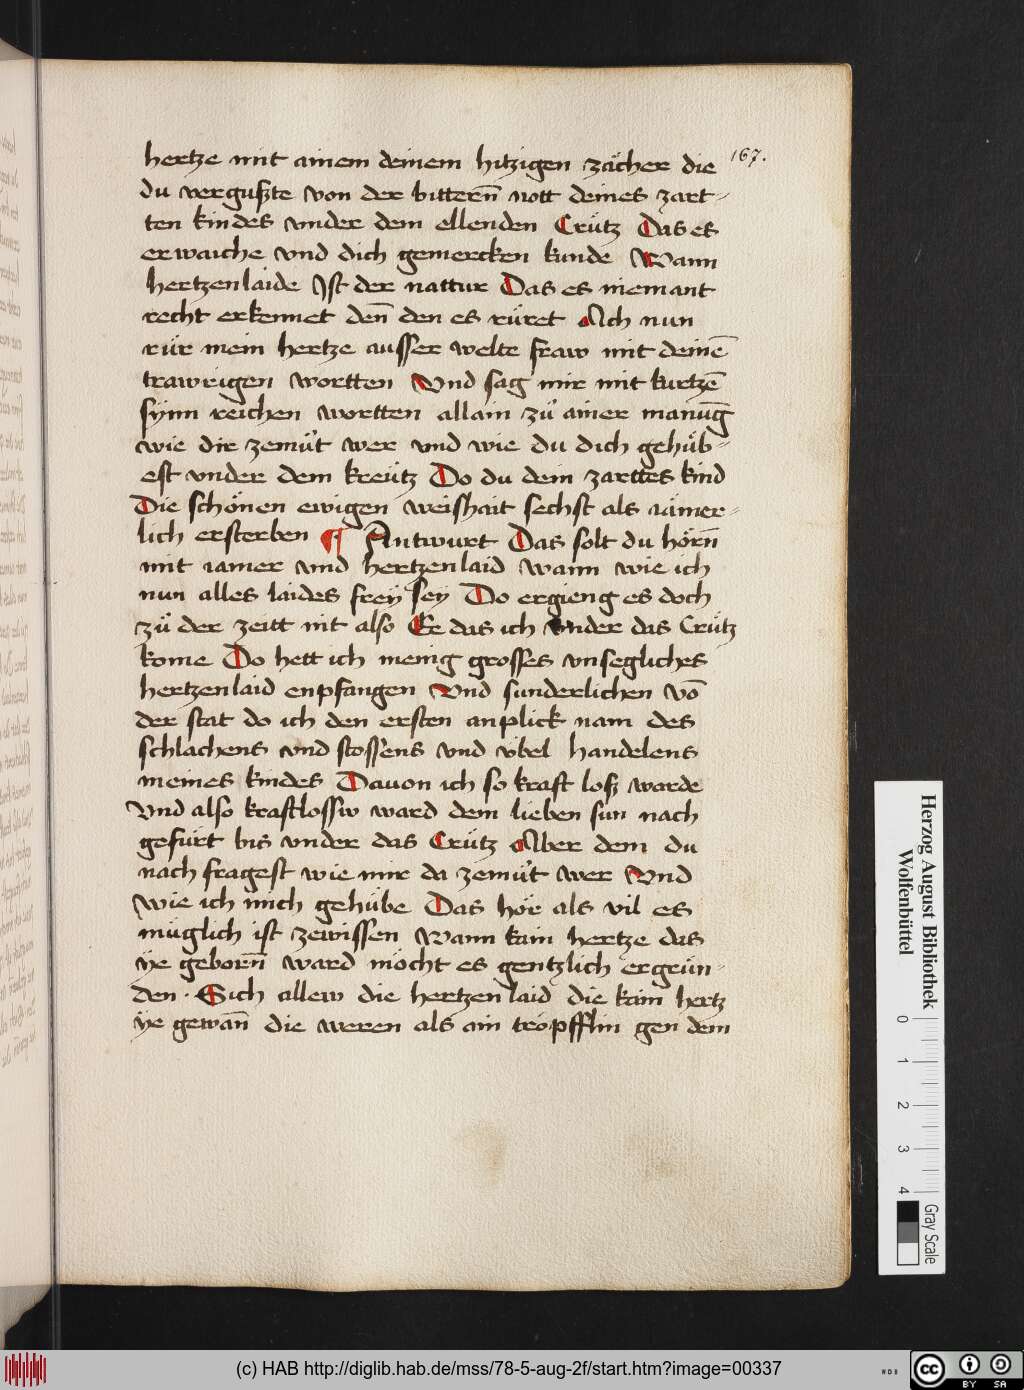 hertze mit ainem deinem hitzigen zächer die 167.
du vergußte von der bittern̄ nott deines zart-
ten kindes vnder dem ellenden Crütz Das es
erwaiche vnd dich gemercken kunde Wann
hertzenlaide Ist der nattur Das es niemant
recht erkennet den̄ den es rüret Ach nun
rür mein hertze ausser welte fraw mit deinē
trawrigen wortten Vnd sag mir mit kurtzē
synn reichen wortten allain zů ainer manūg
wie dir zemůt wer vnd wie du dich gehüb-
est vnder dem kreütz Do du dein zarttes kind
Die schönen ewigen weishait sechst als iämer-
lich ersterben ¶ Antwurt Das solt du hörn̄
mit iamer vnd hertzenlaid wann wie ich
nun alles laides frey sey Do ergieng es doch
zů der zeitt nit also Ee das ich vnder das Crütz
kome Do hett ich menig grosses vnsegliches
hertzenlaid enpfangen Vnd sunderlichen vō
der stat do ich den ersten anplick nam des
schlachens vnd stossens vnd übel handelens
meines kindes Dauon ich so kraft loß warde
Vnd also kraftlossw ward dem lieben sun nach
gefürt bis vnder das Crütz Aber dem du
nach fragest wie mir da zemůt wer Vnd
wie ich mich gehübe Das hör als vil es
müglich ist zewissen Wann kain hertze das
ye geborn̄ ward möcht es gentzlich ergrün-
den. Sich allew die hertzenlaid die kain hertz
ye gewan̄ die weren als ain tröpfflin gen dem
Herzog August Bibliothek
Wolfenbüttel
0 1 2 3 4
Gray Scale
(c) HAB http://diglib.hab.de/mss/78-5-aug-2f/start.htm?image=00337
WDB
cc BY SA